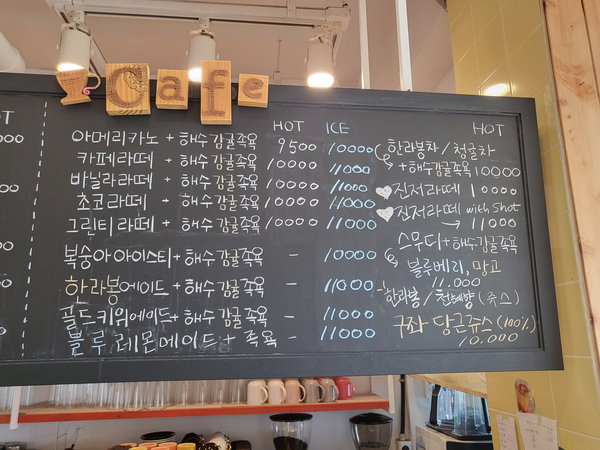 Cafe
HOT
HOT ICE
아메리카노 + 해수감귤족욕 9500 10000
카페라떼 + 해수감귤족욕 10000 11000
바닐라라떼 + 해수감귤족욕 10000 11000
초코라떼 + 해수감귤족욕 10000 11000
그린티라떼 + 해수감귤족욕 10000 11000
복숭아아이스티 + 해수감귤족욕 - 10000
한라봉에이드 + 해수감귤족욕 - 11000
골드키위에이드 + 해수감귤족욕 - 11000
블루레몬에이드 + 족욕 - 11000
HOT
한라봉차 / 청귤차
+ 해수감귤족욕 10000
진저라떼 10000
진저라떼 with shot
→ 11000
스무디 + 해수감귤족욕
블루베리, 망고
11.000
한라봉 / 천혜향 (쥬스)
구좌 당근쥬스 (100%)
10.000